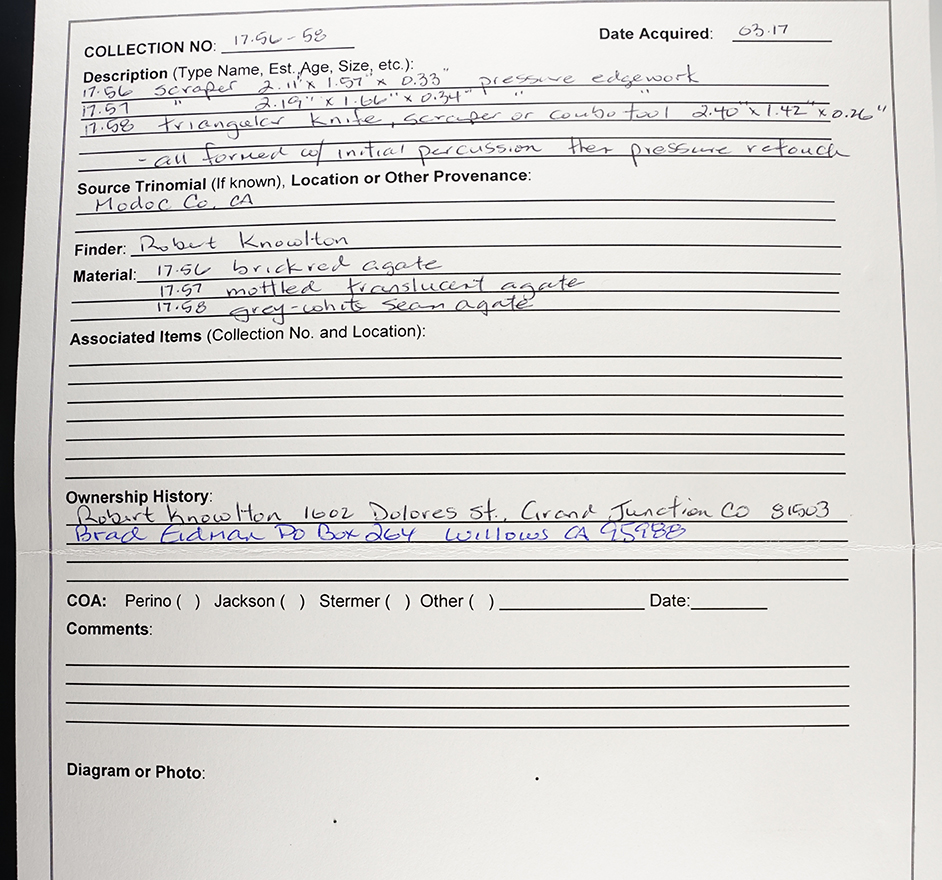 COLLECTION NO: 17.56-58 Date Acquired: 03.17
Description (Type Name, Est. Age, Size, etc.):
17.56 scraper 2.11" x 1.57" x 0.33" pressure edgework
17.57 " 2.19" x 1.66" x 0.34" " "
17.58 triangular knife, scraper or combo tool 2.40" x 1.42" x 0.26"
- all formed w/ initial percussion then pressure retouch
Source Trinomial (If known), Location or Other Provenance:
Modoc Co. CA
Finder: Robert Knowlton
Material: 17.56 brickred agate
17.57 mottled translucent agate
17.58 grey-white seam agate
Associated Items (Collection No. and Location):
Ownership History:
Robert Knowlton 1602 Dolores St., Grand Junction CO 81503
Brad Eidman PO Box 264 Willows CA 95988
COA: Perino ( ) Jackson ( ) Stermer ( ) Other ( ) Date:
Comments:
Diagram or Photo: